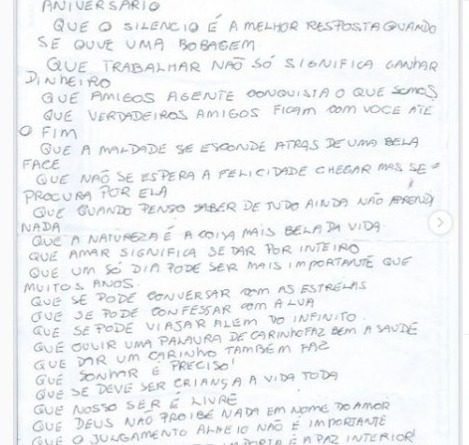 ANIVERSÁRIO
QUE O SILENCIO É A MELHOR RESPOSTA QUANDO
SE OUVE UMA BOBAGEM
QUE TRABALHAR NÃO SÓ SIGNIFICA GANHAR
DINHEIRO
QUE AMIGOS AGENTE CONQUISTA O QUE SOMOS
QUE VERDADEIROS AMIGOS FICAM COM VOCE ATÉ
O FIM
QUE A MALDADE SE ESCONDE ATRAS DE UMA BELA
FACE
QUE NÃO SE ESPERA A FELICIDADE CHEGAR MAS SE
PROCURA POR ELA
QUE QUANDO PENSO SABER DE TUDO AINDA NÃO APRENDI
NADA
QUE A NATUREZA É A COISA MAIS BELA DA VIDA.
QUE AMAR SIGNIFICA SE DAR POR INTEIRO
QUE UM SÓ DIA PODE SER MAIS IMPORTANTE QUE
MUITOS ANOS.
QUE SE PODE CONVERSAR COM AS ESTRELAS
QUE SE PODE CONFESSAR COM A LUA
QUE SE PODE VIAJAR ALEM DO INFINITO.
QUE OUVIR UMA PALAURA DE CARINHO FAZ BEM A SAUDÉ
QUE DAR UM CARINHO TAMBEM FAZ
QUE SONHAR É PRECISO!
QUE SE DEVE SER CRIANÇA A VIDA TODA
QUE NOSSO SER É LIVRE
QUE DEUS NÃO PROIBE NADA EM NOME DO AMOR
QUE O JULGAMENTO ALHEIO NÃO É IMPORTANTE
IMPORTA É A PAZ INTERIOR!